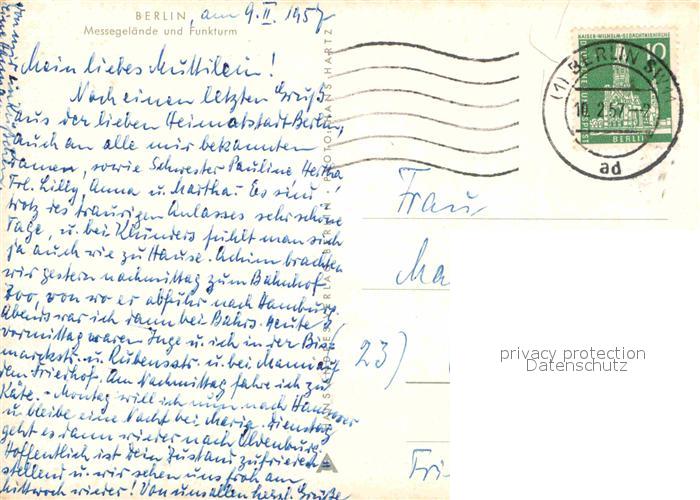 BERLIN, am 9.II.1957
Messegelände und Funkturm
Mein liebes Muttilein!
Noch einen letzten Gruß
aus der lieben Heimatstadt Berlin,
auch an alle mir bekannten
Damen, sowie Schwester Pauline, Hertha
Frl. Lilly, Anna u. Martha. Es sind
trotz des traurigen Anlasses sehr schöne
Tage, u. bei Klunders fühlt man sich
ja auch wie zu Hause. Achim brachten
wir gestern nachmittag zum Bahnhof
Zoo, von wo er abfuhr nach Hamburg.
Abends war ich dann bei Bührs. Heute
vormittag waren Inge u. ich in der Bis-
marckstr. u. Rubensstr. u. bei Mami auf
dem Friedhof. Am Nachmittag fahre ich zu
Käte. - Montag will ich nun nach Hannover
u. bleibe eine Nacht bei Maria. Dienstag
geht es dann wieder nach Oldenburg.
Hoffentlich ist Dein Zustand zufrieden-
stellend u. wir sehen uns froh am
Mittwoch wieder! Von uns allen herzl. Grüße
PHOTO: HANS HARTZ
KAISER-WILHELM-GEDÄCHTNISKIRCHE
10
DEUTSCHE BUNDESPOST
BERLIN
(1) BERLIN SW 11
10.2.57
ad
Frau
Ma
23)
Fri
privacy protection
Datenschutz